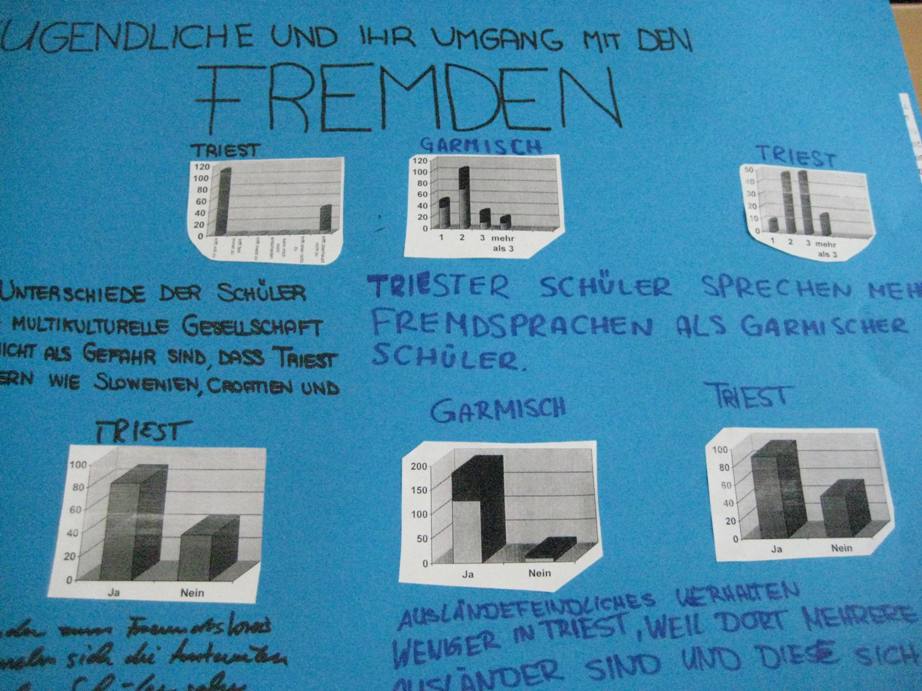 JUGENDLICHE UND IHR UMGANG MIT DEN
FREMDEN
TRIEST
120
100
80
60
40
20
0
GARMISCH
120
100
80
60
40
20
0
1 2 3 mehr
als 3
TRIEST
50
40
30
20
10
0
1 2 3 mehr
als 3
UNTERSCHIEDE DER SCHÜLER
MULTIKULTURELLE GESELLSCHAFT
ICHT ALS GEFAHR SIND, DASS TRIEST
ERN WIE SLOWENIEN, CROATIEN UND
TRIESTER SCHÜLER SPRECHEN MEH
FREMDSPRACHEN ALS GARMISCHER
SCHÜLER.
TRIEST
100
80
60
40
20
0
Ja Nein
GARMISCH
200
150
100
50
0
Ja Nein
TRIEST
100
80
60
40
20
0
Ja Nein
sich die
AUSLÄNDEFEINDLICHES VERHALTEN
WENIGER IN TRIEST, WEIL DORT MEHRERE
AUSLÄNDER SIND UND DIESE SICH